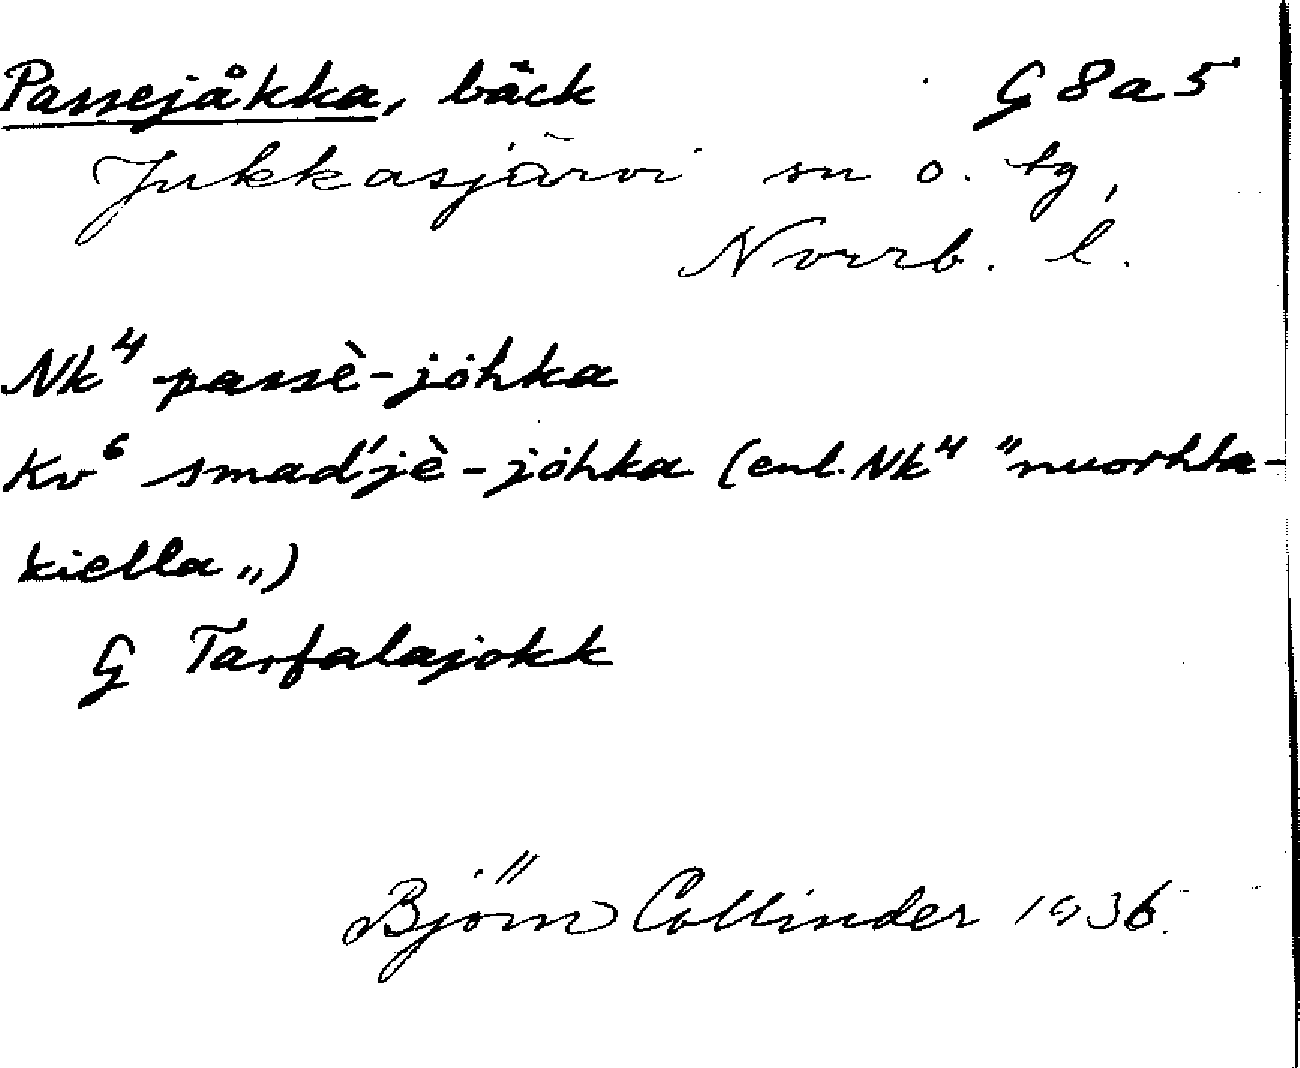 Passejåkka, bäck G 8 a 5
Jukkasjärvi sn o. tg,
Norrb. l.
Nk⁴ passè-jöhka
Kv⁶ smad'jè-jöhka (enl. Nk⁴ "nuorhta-
kiella„)
G Tarfalajokk
Björn Collinder 1936.